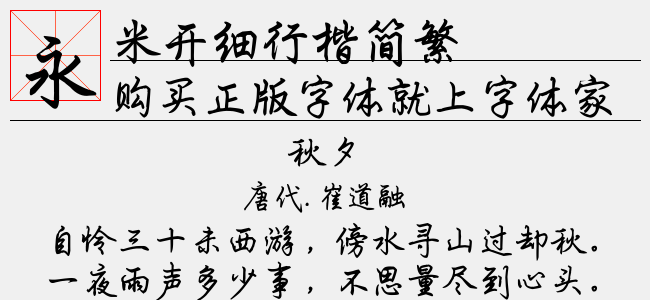 永
米开细行楷简繁
购买正版字体就上字体家
秋夕
唐代.崔道融
自怜三十未西游，傍水寻山过却秋。
一夜雨声多少事，不思量尽到心头。